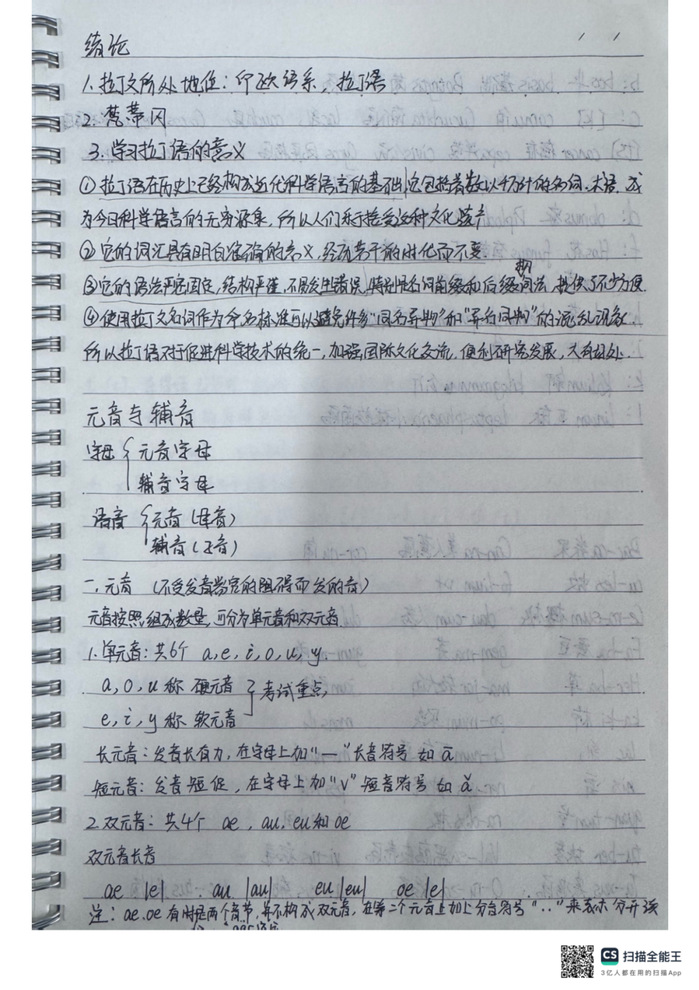 绪论
1. 拉丁文所处地位：印欧语系，拉丁语
2.
3. 学习拉丁语的意义
① 拉丁语在历史上已经构成近代科学语言的基础，它包括着数以千万计的名词、术语，成
为今日科学语言的无穷源泉，所以人们乐于接受这种文化遗产
② 它的词义具有明白准确的意义，经若干的时代而不变.
③ 它的语法严密固定，结构严谨，不易发生错误，特别是名词前缀和后缀的构词法，提供了不少方便
④ 使用拉丁文名词作为命名标准可以避免许多“同名异物”和“异名同物”的混乱现象.
所以拉丁语对于促进科学技术的统一，加强国际文化交流，便利研究发展，大有益处.
元音与辅音
字母 { 元音字母
辅音字母
语音 { 元音 (母音)
辅音 (子音)
一. 元音 (不受发音器官的阻碍而发的音)
元音按照组成数量，可分为单元音和双元音.
1. 单元音：共6个 a, e, i, o, u, y.
a, o, u 称 硬元音 } 考试重点.
e, i, y 称 软元音
长元音：发音长有力，在字母上加“—”长音符号 如 ā
短元音：发音短促，在字母上加“v”短音符号 如 ǎ
2. 双元音：共4个 ae, au, eu 和 oe
双元音长音
ae |e| au |au| eu |eu| oe |e|
注：ae. oe 有时是两个音节，并不构成双元音，在第二个元音上加上分音符号“..”来表示分开读
扫描全能王
3亿人都在用的扫描App